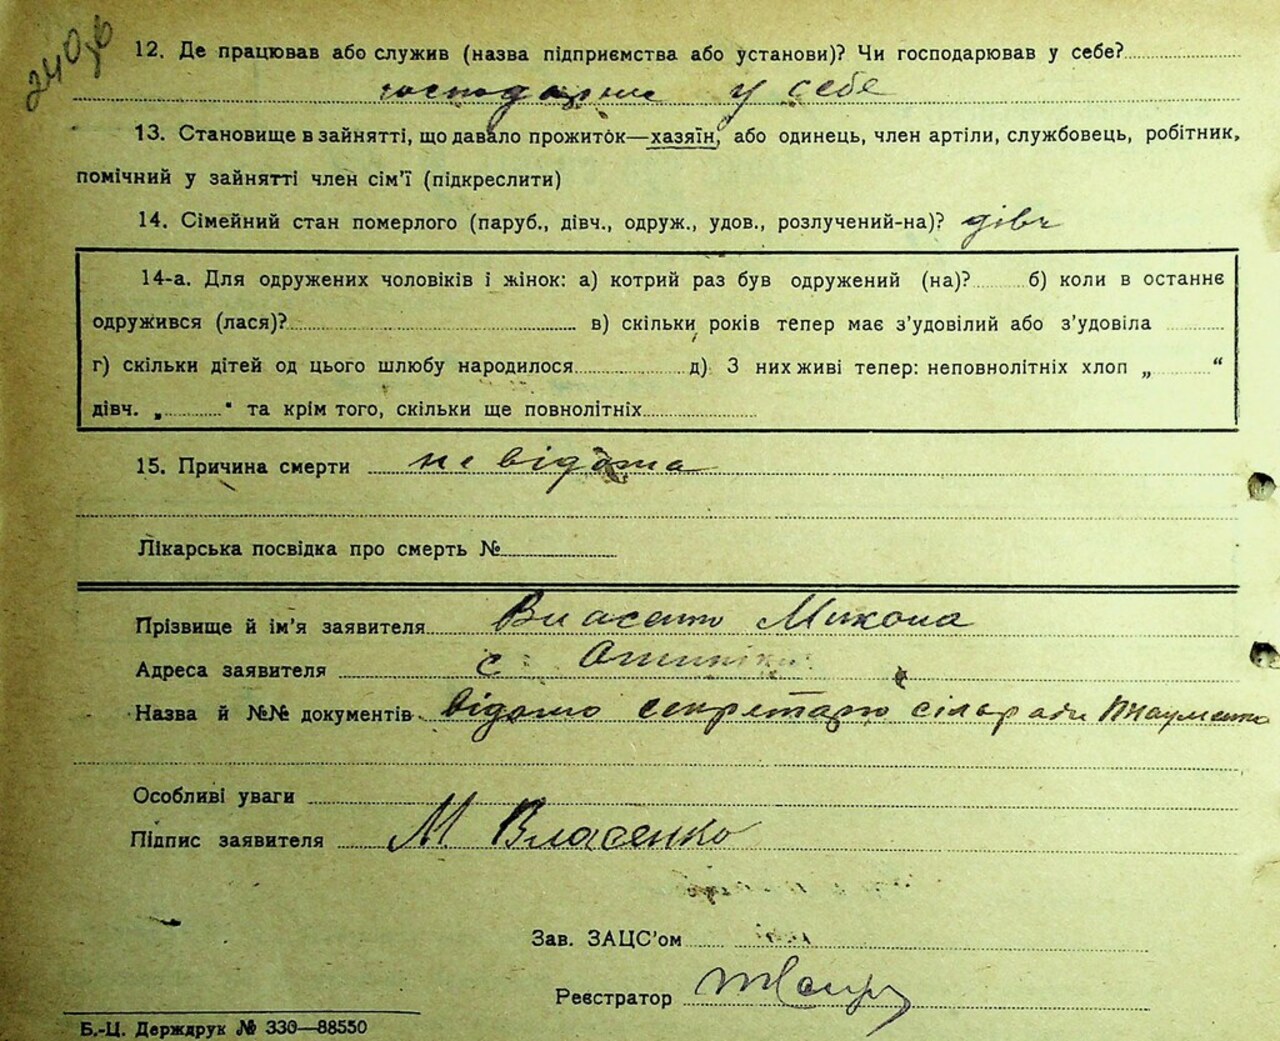 12. Де працював або служив (назва підприємства або установи)? Чи господарював у себе?
у себе
13. Становище в зайнятті, що давало прожиток—хазяїн, або одинець, член артілі, службовець, робітник,
помічний у зайнятті член сім'ї (підкреслити)
14. Сімейний стан померлого (паруб., дівч., одруж., удов., розлучений-на)? дівч
14-а. Для одружених чоловіків і жінок: а) котрий раз був одружений (на)? б) коли в останнє
одружився (лася)? в) скільки років тепер має з'удовілий або з'удовіла
г) скільки дітей од цього шлюбу народилося д) З них живі тепер: неповнолітніх хлоп „ “
дівч. „ “ та крім того, скільки ще повнолітніх
15. Причина смерти не відома
Лікарська посвідка про смерть №
Прізвище й ім'я заявителя Власенко Микола
Адреса заявителя с.
Назва й №№ документів відомо секретарю сільради
Особливі уваги
Підпис заявителя М Власенко
Зав. ЗАЦС'ом
Реєстратор
Б.-Ц. Держдрук № 330—88550